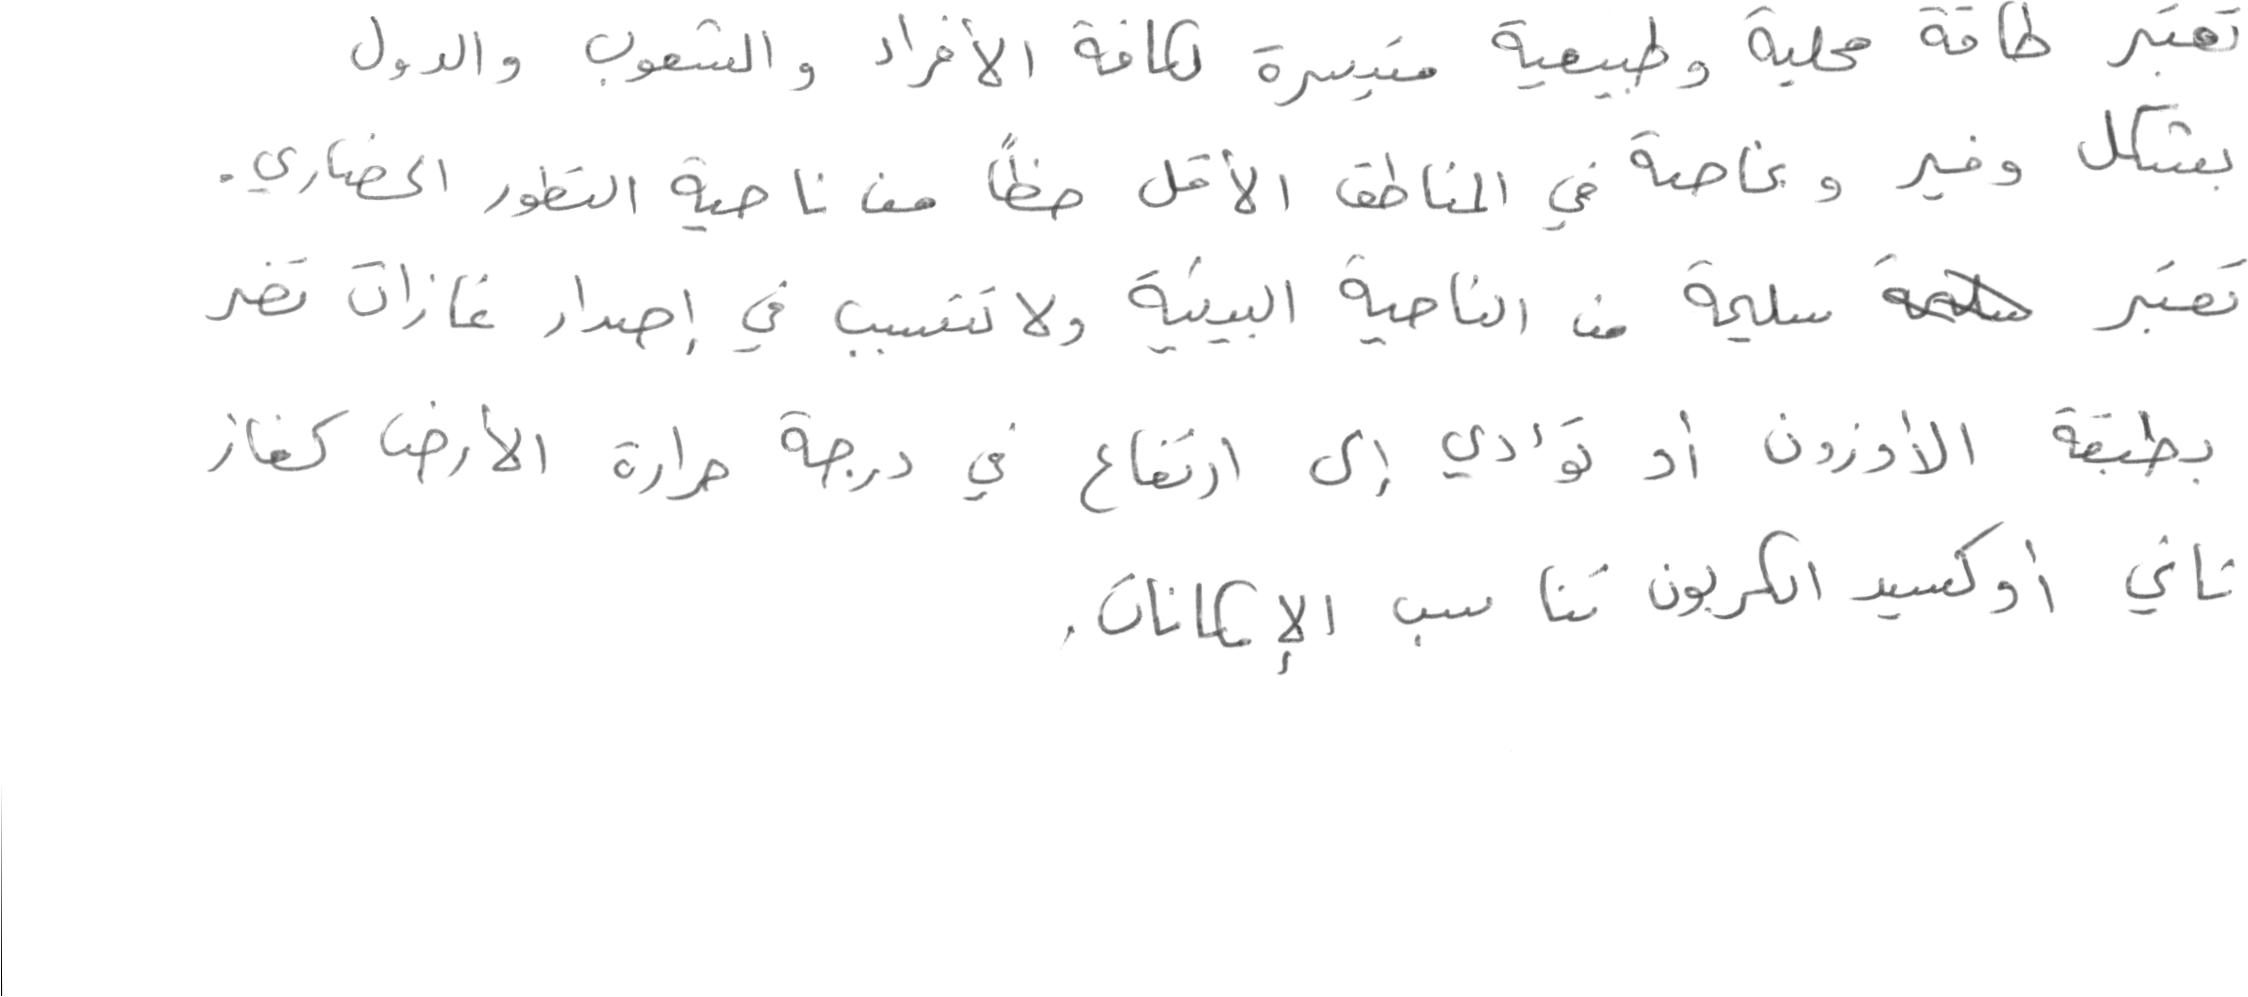 تعتبر طاقة محلية وطبيعية متيسرة لكافة الأفراد والشعوب والدول
بشكل وفير وبخاصة في المناطق الأقل حظاً من ناحية التطور الحضاري.
تعتبر سليمة من الناحية البيئية ولا تتسبب في إصدار غازات تضر
بطبقة الأوزون أو تؤدي إلى ارتفاع في درجة حرارة الأرض كغاز
ثاني أوكسيد الكربون تناسب الإمكانات.